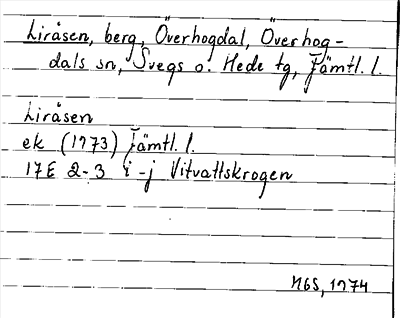 Liråsen, berg, Överhogdal, Överhog-
dals sn, Svegs o. Hede tg, Jämtl. l.
Liråsen
ek (1973) Jämtl. l.
17E 2-3 i-j Vitvattskrogen
NGS, 1974